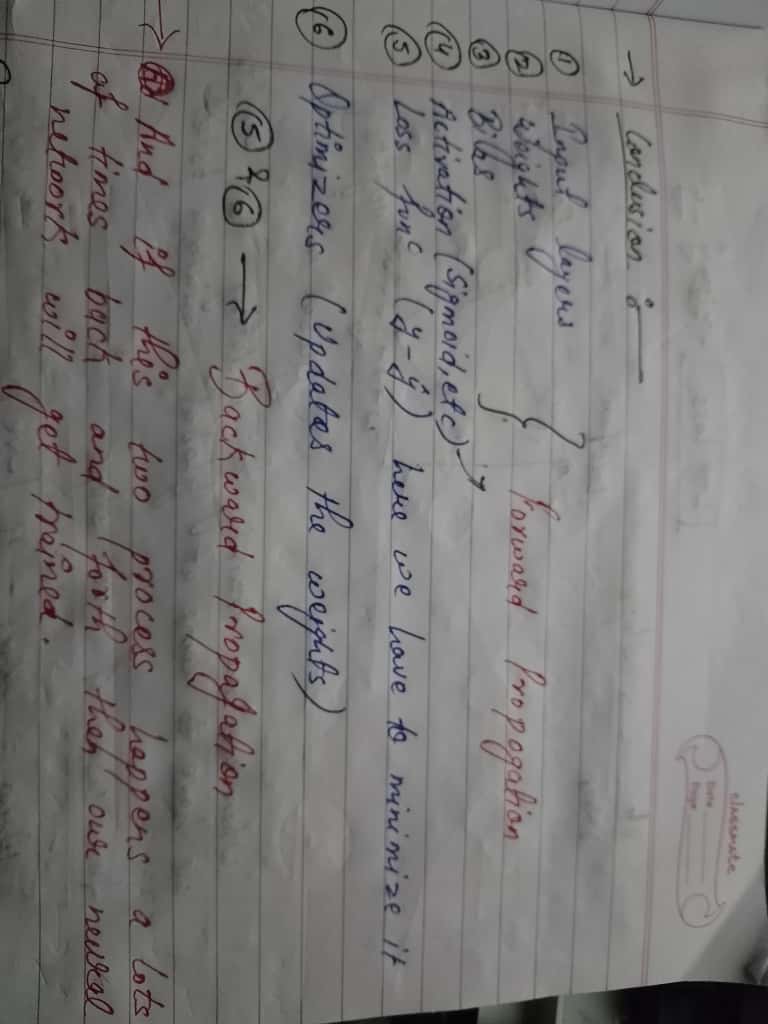 classmate
Date
Page
→ Conclusion :—
① Input layers
② Weights
③ Bias
} Forward Propogation
④ Activation (Sigmoid, etc)
⑤ Loss funᶜ (y-ŷ) here we have to minimize it
⑥ Optimizers (Updates the weights)
⑤ & ⑥ → Backward Propagation
→ And if this two process happens a lots
of times back and forth then our neural
network will get trained.